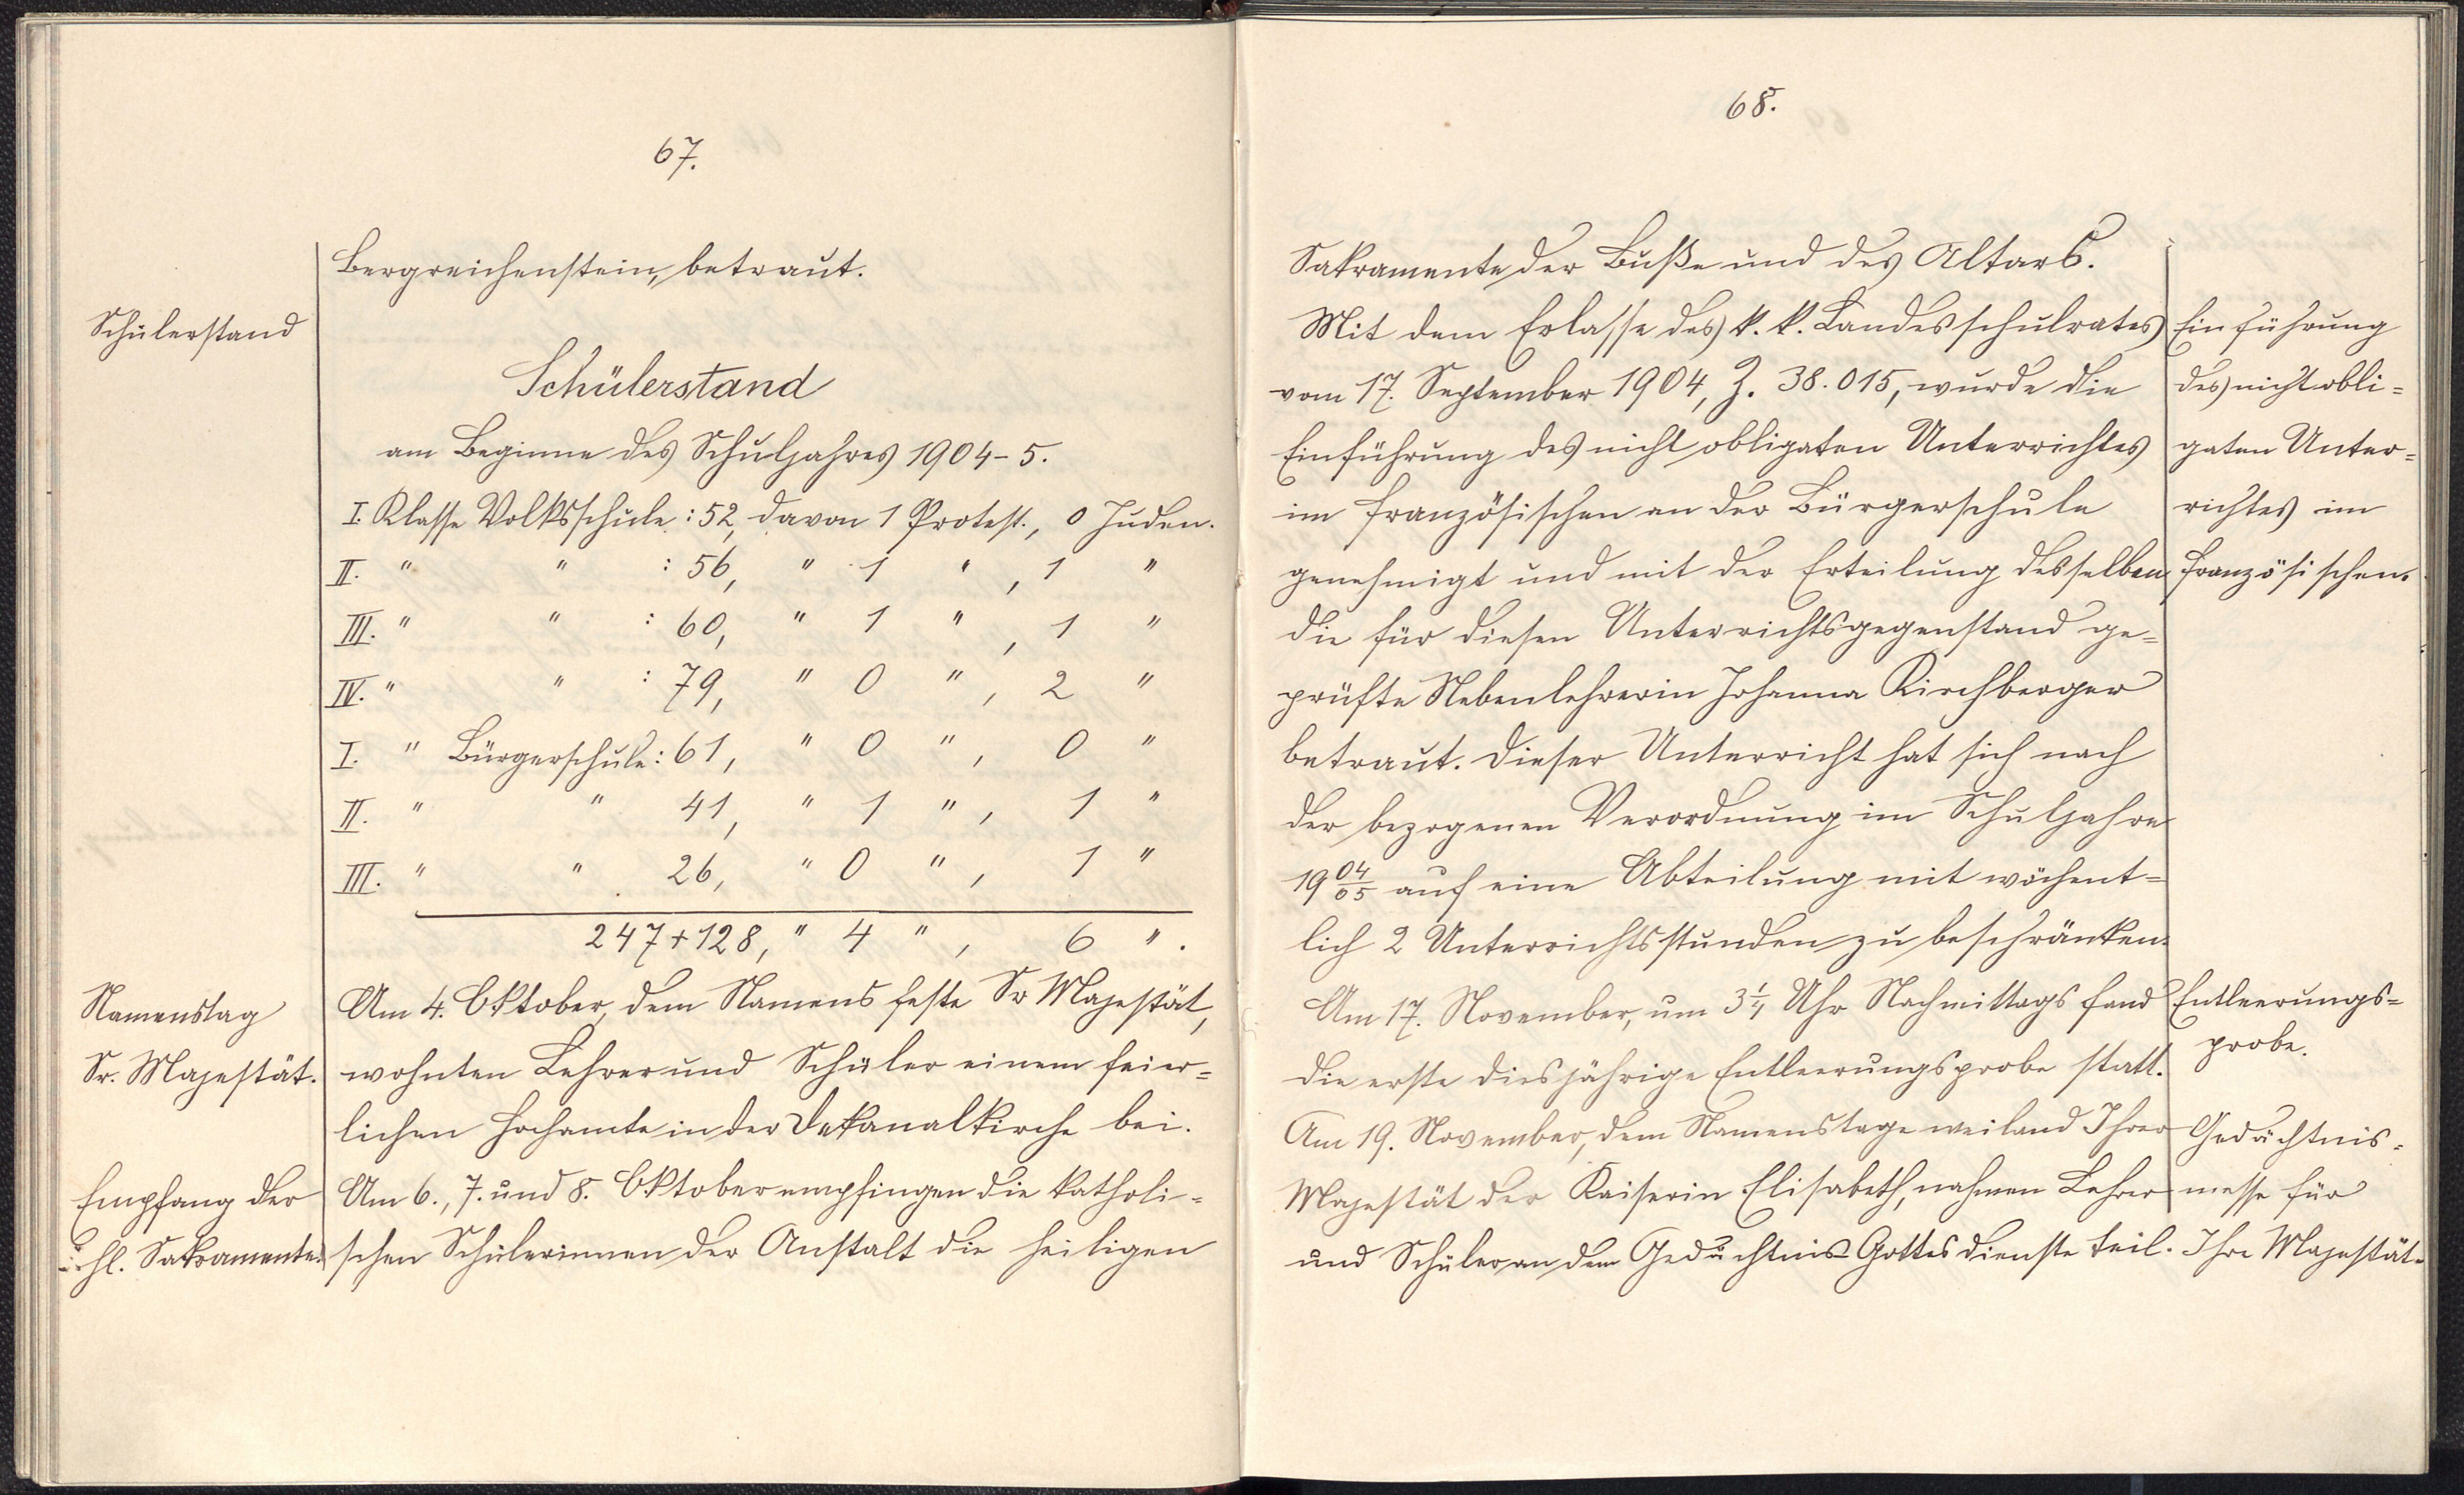 67.
Bergreichenstein, betraut.
Schülerstand
Schülerstand
am Beginne des Schuljahres 1904-5.
I. Klasse Volksschule: 52, davon 1 Protest., 0 Juden.
II. " " : 56, " 1 " , 1 "
III. " " : 60, " 1 " , 1 "
IV. " " : 79, " 0 " , 2 "
I. " Bürgerschule: 61, " 0 " , 0 "
II. " " 41, " 1 " , 1 "
III. " " 26, " 0 " , 1 "
247+128, " 4 " , 6 " .
Namenstag
Sr. Majestät.
Am 4. Oktober, dem Namensfeste Sr Majestät,
wohnten Lehrer und Schüler einem feier=
lichen Hochamte in der Dekanalkirche bei.
Empfang der
hl. Sakramente.
Am 6., 7. und 8. Oktober empfingen die katholi=
schen Schülerinnen der Anstalt die heiligen
68.
Sakramente der Buße und des Altars.
Mit dem Erlasse des k. k. Landesschulrates
vom 17. September 1904, Z. 38.015, wurde die
Einführung des nicht obligaten Unterrichtes
im Französischen an der Bürgerschule
genehmigt und mit der Erteilung desselben
die für diesen Unterrichtsgegenstand ge=
prüfte Nebenlehrerin Johanna Kirchberger
betraut. Dieser Unterricht hat sich nach
der bezogenen Verordnung im Schuljahre
19 04/05 auf eine Abteilung mit wöchent=
lich 2 Unterrichtsstunden zu beschränken.
Einführung
des nicht obli=
gaten Unter=
richtes im
Französischen.
Am 17. November, um 3 1/4 Uhr Nachmittags fand
die erste diesjährige Entleerungsprobe statt.
Entleerungs=
probe.
Am 19. November, dem Namenstage weiland Ihrer
Majestät der Kaiserin Elisabeth, nahmen Lehrer
und Schüler an dem Gedächtnis Gottesdienste teil.
Gedächtnis=
messe für
Ihre Majestät.